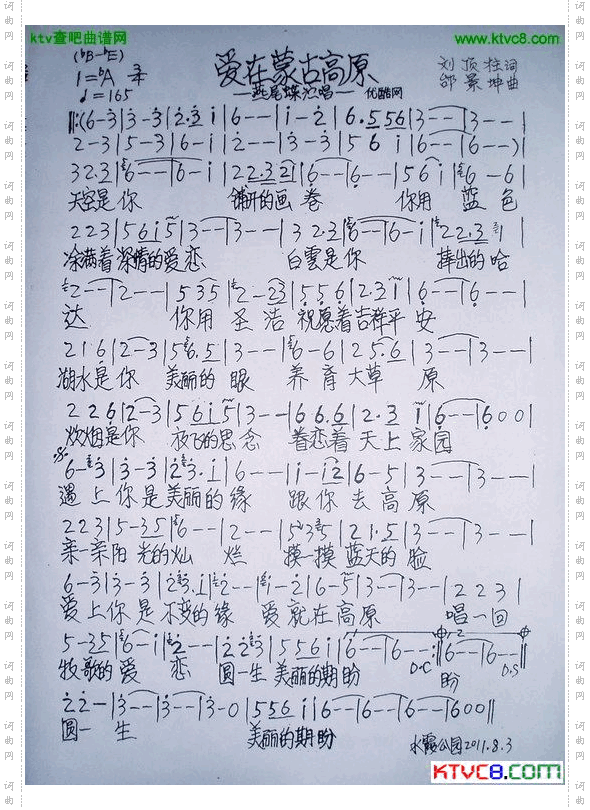 ktv查吧曲谱网
www.ktvc8.com
(ᵇB-ᵇE)
1=ᵇA 3/4
爱在蒙古高原
刘顶柱词
♩=165
燕尾蝶演唱 优酷网
邰景坤曲
‖:(6-3|3-3|2·3 i|6--|i-2|6·5 5 6|3--|3--|
2-3|5-3|6-i|2--|3-3|5 6 i|6--|6--)|
3 2 3|6--|6-i|2 2·3 2|6--|6--|5 6 i|6-6|
天空是你 铺开的画卷 你用蓝色
2 2 3|5 6 i 5|3--|3--|3 2·3|6--|6-i|2 2·3 1|
涂满着深情的爱恋 白雲是你 捧出的哈
2--|2--|5 3 5|2-2 3|5·5 6|2·3 i|6--|6--|
达 你用圣洁祝愿着吉祥平安
2 1 6|2-3|5 6·5|3--|6-6|2 5·6|3--|3--|
湖水是你 美丽的眼 养育大草原
2 2 6|2-3|5 6 i 5|3--|6 6·6|2·3 i|6--|6 0 0|
炊烟是你 放飞的思念 眷恋着天上家园
6-3|3-3|2 3·i|6--|i-i 2|6-5|3--|3--|
遇上你是美丽的缘 跟你去高原
2 2 3|5-3 5|6--|2--|5 3 5|2 1·5|3--|3--|
亲一亲阳光的灿烂 摸一摸蓝天的脸
6-3|3-3|2 3·i|2--|i-2|6-5|3--|3--|2 2 3|
爱上你是不变的缘 爱就在高原 唱一回
5-3 5|6-i|2--|2 2 3|5 5 6 i|6--|6--:‖6--|6--‖
牧歌的爱恋 圆一生美丽的期盼 D.C 盼 D.S
2 2-|3--|3--|3-0|5 5 6 i|6--|6--|6--|6 0 0‖
圆一生 美丽的期盼
水霞公园2011.8.3
KTVC8.com
词曲网